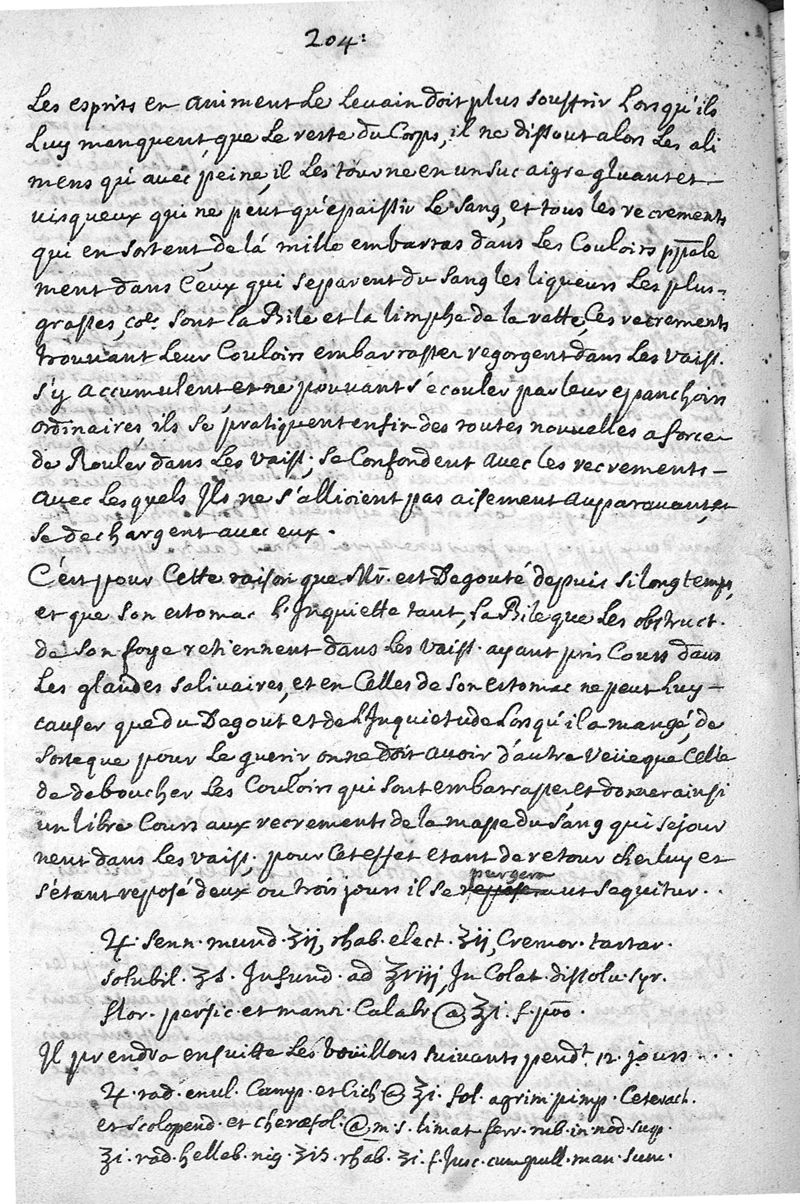 204:
Les esprits en animent Le Levain doit plus souffrir Lorsqu'ils
Luy manquent, que Le reste du Corps, il ne dissout alors Les ali
mens qu'avec peine, il Les tourne en un suc aigre gluant et
visqueux qui ne peut qu'epaissir Le sang, et tous les recrements
qui en sortent, de là mille embarras dans Les Couloirs ppale
ment dans Ceux qui separent du sang les liqueurs Les plus
grasses, coe. sont la Bile et la limphe de la ratte, Ces recrements
trouvant Leur Couloirs embarrasser regorgent dans Les vaiss.
s'y accumulent et ne pouvant s'ecouler par leur epanchoirs
ordinaires ils se pratiquent enfin des routes nouvelles a force
de Rouler dans Les vaiss; se Confondent avec les recrements
avec Lesquels Ils ne s'allioient pas aisement auparavant, et
se dechargent avec eux.
C'est pour Cette raison que Mr. est Degouté depuis si longtemps,
et que son estomac L'Inquiette tant, La Bile que Les obstruct.
de son foye retiennent dans Les vaiss. ayant pris Cours dans
Les glandes salivaires, et en Celles de son estomac ne peut Luy
causer que du Degout et de L'Inquietude Lorsqu'il a mangé, de
sorte que pour Le guerir on ne doit avoir d'autre veüe que Celle
de deboucher Les Couloirs qui sont embarrasser et donner ainsi
un libre Cours aux recrements de la masse du sang qui sejour
nent dans Les vaiss. pour Cet effet etant de retour chez Luy et
s'etant reposé deux ou trois jours il se purgera ut sequitur..
♃. senn. mund. ʒij, rhab. elect. ʒij, Cremor. tartar.
solubil. ʒs. Infund. ad ℥viij, In Colat. dissolv. syr.
flor. persic. et mann. Calabr. @ ℥i. f. poo.
Il prendra ensuitte Les boüillons suivants pendt. 12. jours...
♃. rad. enul. Camp. et Cich @ ℥i. fol. agrim. pimp. Ceterach.
et scolopend. et cheræfol. @ m. s. limat. ferr. rub. in nod. susp.
℥i. rad. helleb. nig. ʒis. rhab. ʒi. f. Jusc. cum pull. man. sum.